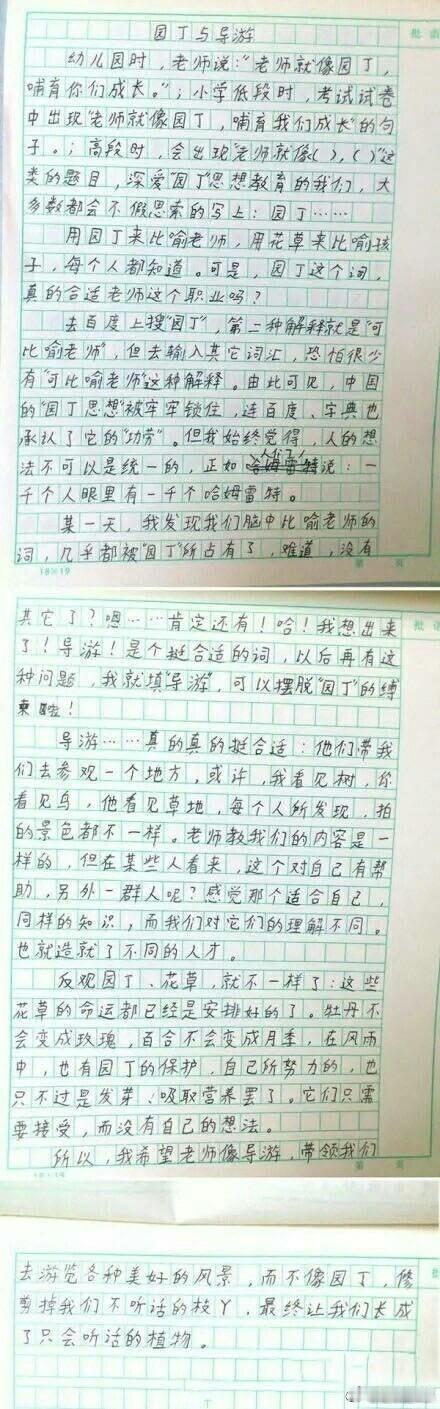 园丁与导游
幼儿园时，老师说：“老师就像园丁，
哺育你们成长。”；小学低段时，考试试卷
中出现“老师就像园丁，哺育我们成长”的句
子。；高段时，会出现“老师就像( )，( )”这
类的题目，深爱“园丁”思想教育的我们，大
多数都会不假思索的写上：园丁……
用园丁来比喻老师，用花草来比喻孩
子，每个人都知道。可是，园丁这个词，
真的合适老师这个职业吗？
去百度上搜“园丁”，第二种解释就是“可
比喻老师”，但去输入其它词汇，恐怕很少
有“可比喻老师”这种解释。由此可见，中国
的“园丁思想”被牢牢锁住，连百度、字典也
承认了它的“功劳”。但我始终觉得，人的想
法不可以是统一的，正如人们说：一
千个人眼里有一千个哈姆雷特。
某一天，我发现我们脑中比喻老师的
词，几乎都被“园丁”所占有了，难道，没有
18×19
第 页
批语
其它了？嗯……肯定还有！哈！我想出来
了！导游！是个挺合适的词，以后再有这
种问题，我就填“导游”，可以摆脱“园丁”的缚
束啦！
导游……真的真的挺合适：他们带我
们去参观一个地方，或许，我看见树，你
看见鸟，他看见草地，每个人所发现、拍
的景色都不一样。老师教我们的内容是一
样的，但在某些人看来，这个对自己有帮
助，另外一群人呢？感觉那个适合自己，
同样的知识，而我们对它们的理解不同。
也就造就了不同的人才。
反观园丁、花草，就不一样了：这些
花草的命运都已经是安排好的了。牡丹不
会变成玫瑰，百合不会变成月季，在风雨
中，也有园丁的保护，自己所努力的，也
只不过是发芽、吸取营养罢了。它们只需
要接受，而没有自己的想法。
所以，我希望老师像导游，带领我们
第 页
去游览各种美好的风景，而不像园丁，修
剪掉我们不听话的枝丫，最终让我们长成
了只会听话的植物。